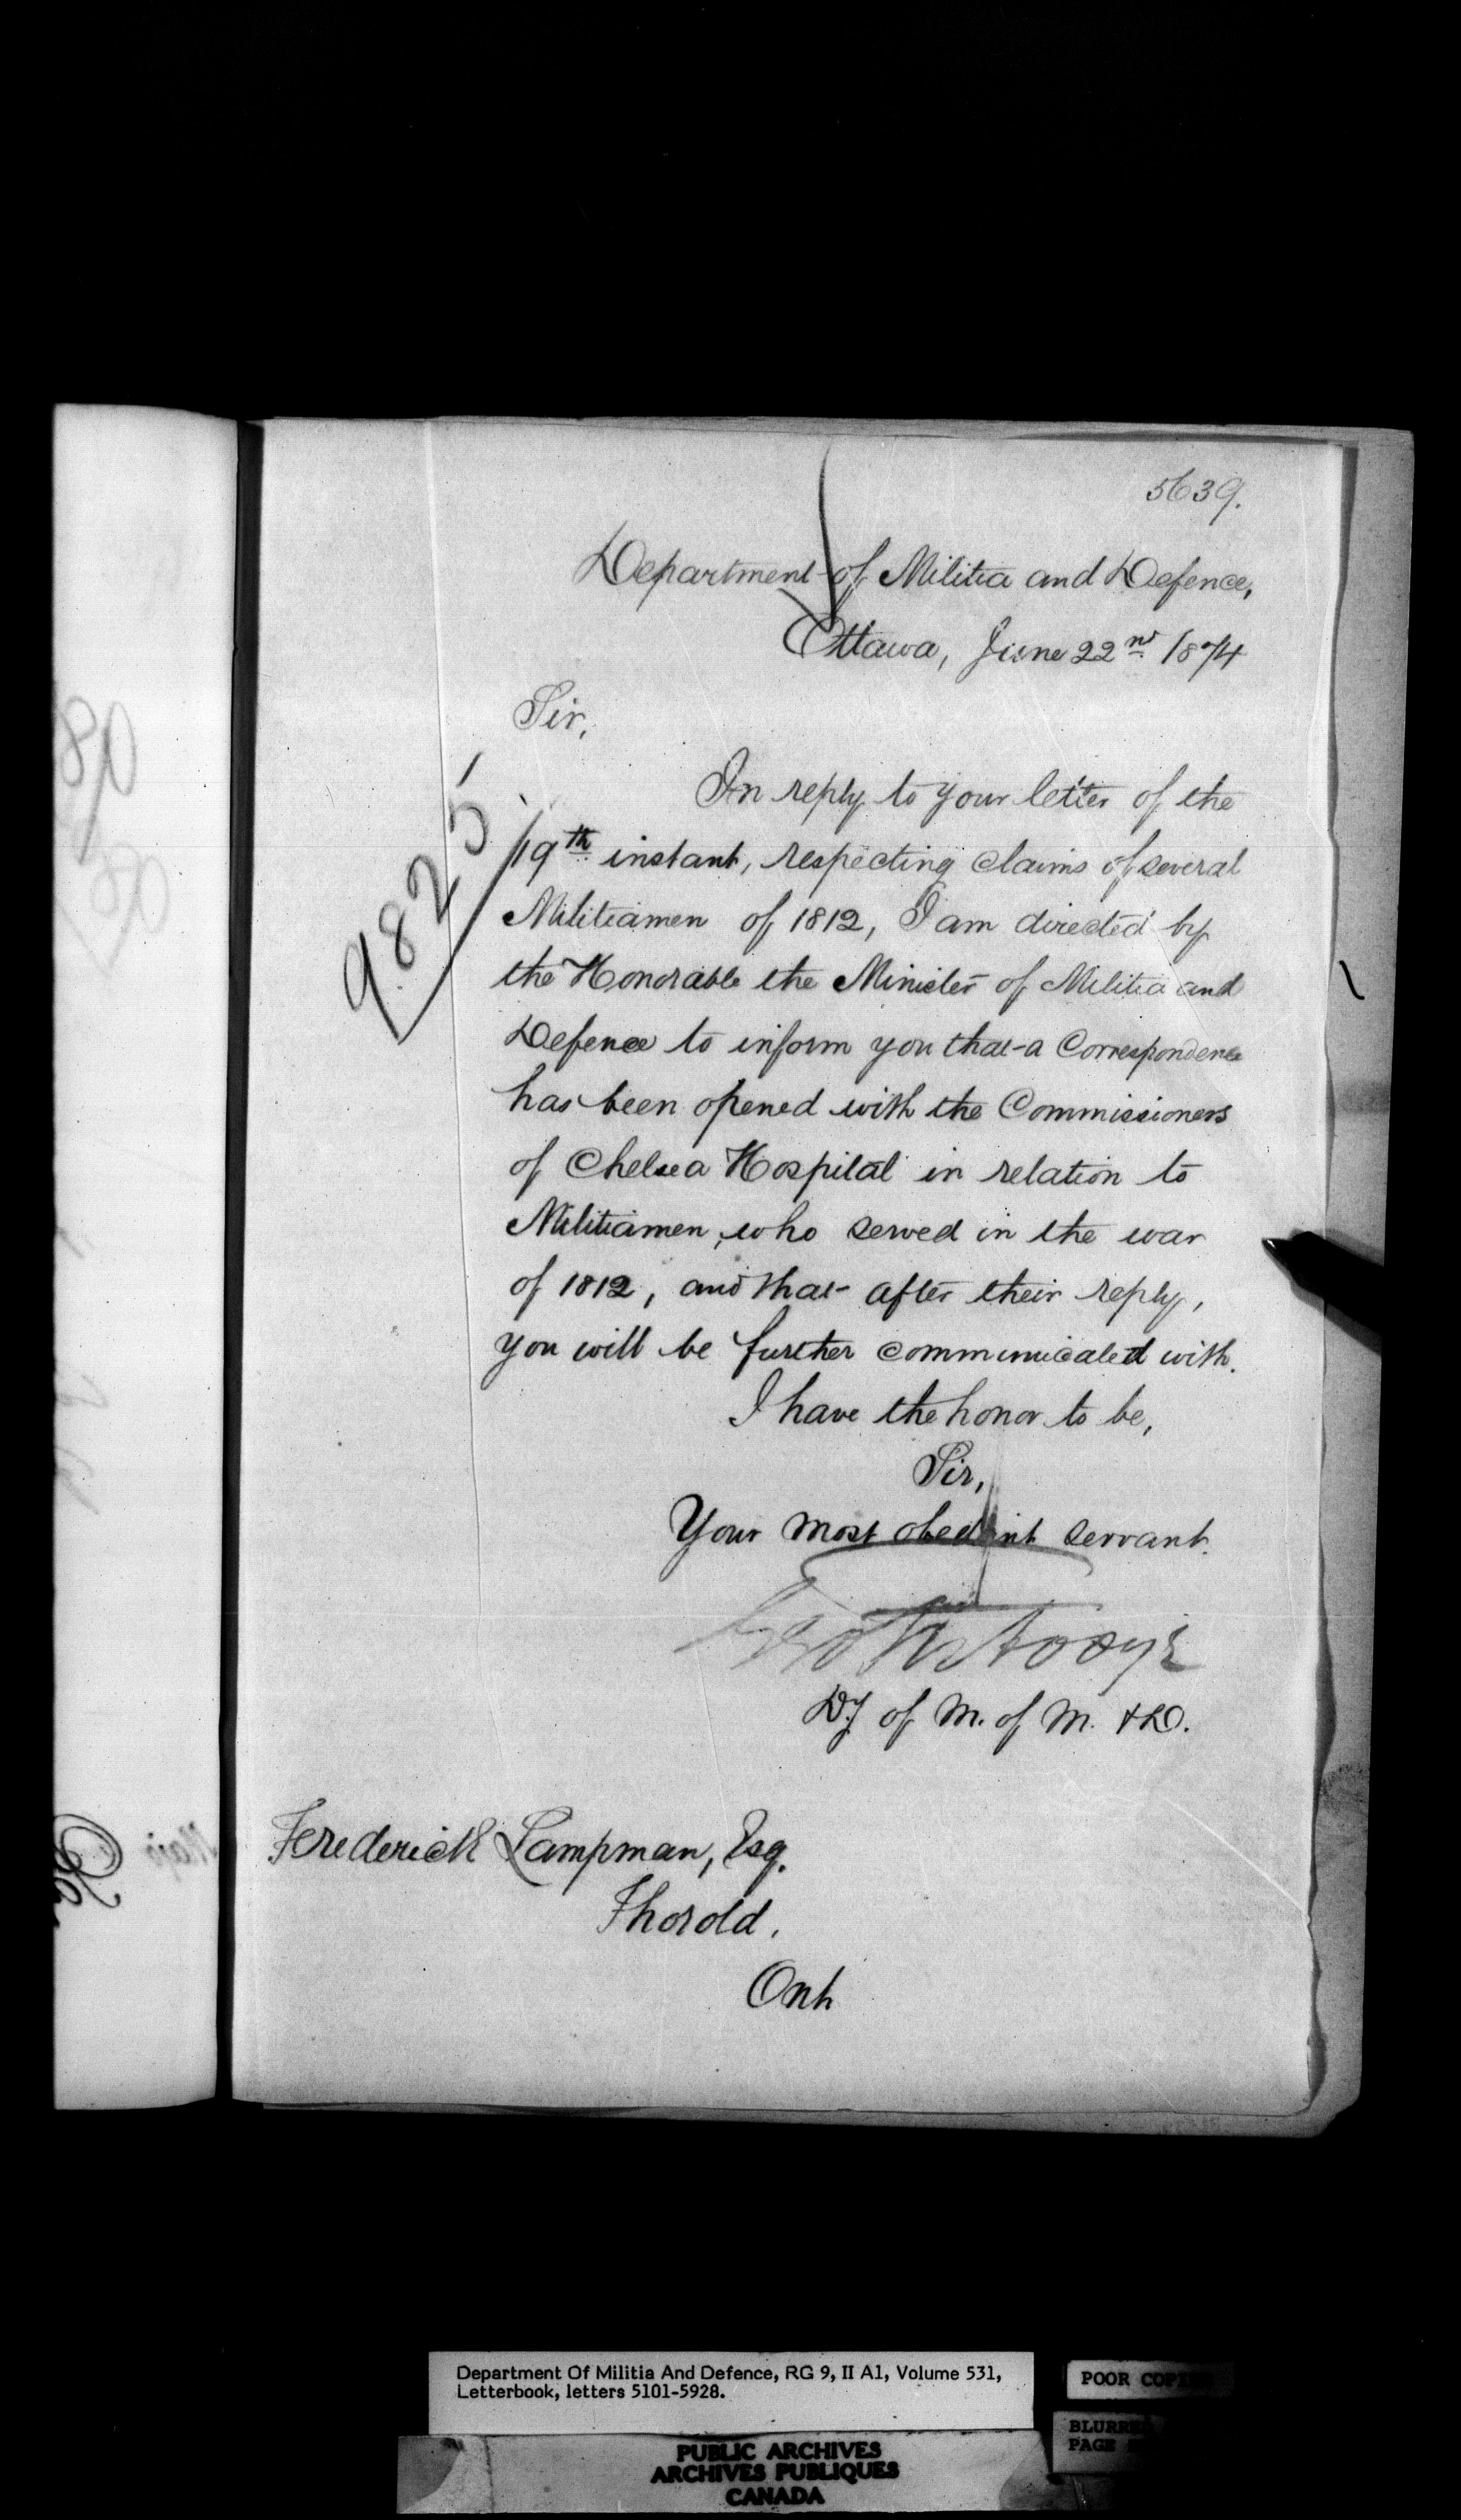 5639.
Department of Militia and Defence,
Ottawa, June 22nd 1874
Sir,
In reply to your letter of the
19th instant, respecting claims of several
Militiamen of 1812, I am directed by
the Honorable the Minister of Militia and
Defence to inform you that a Correspondence
has been opened with the Commissioners
of Chelsea Hospital in relation to
Militiamen, who served in the war
of 1812, and that after their reply,
you will be further communicated with.
I have the honor to be,
Sir,
Your most obedient servant.
Dy of M. of M. & D.
9825
Frederick Lampman, Esq.
Thorold.
Ont
Department Of Militia And Defence, RG 9, II A1, Volume 531,
Letterbook, letters 5101-5928.
POOR
PAGE
PUBLIC ARCHIVES
ARCHIVES PUBLIQUES
CANADA